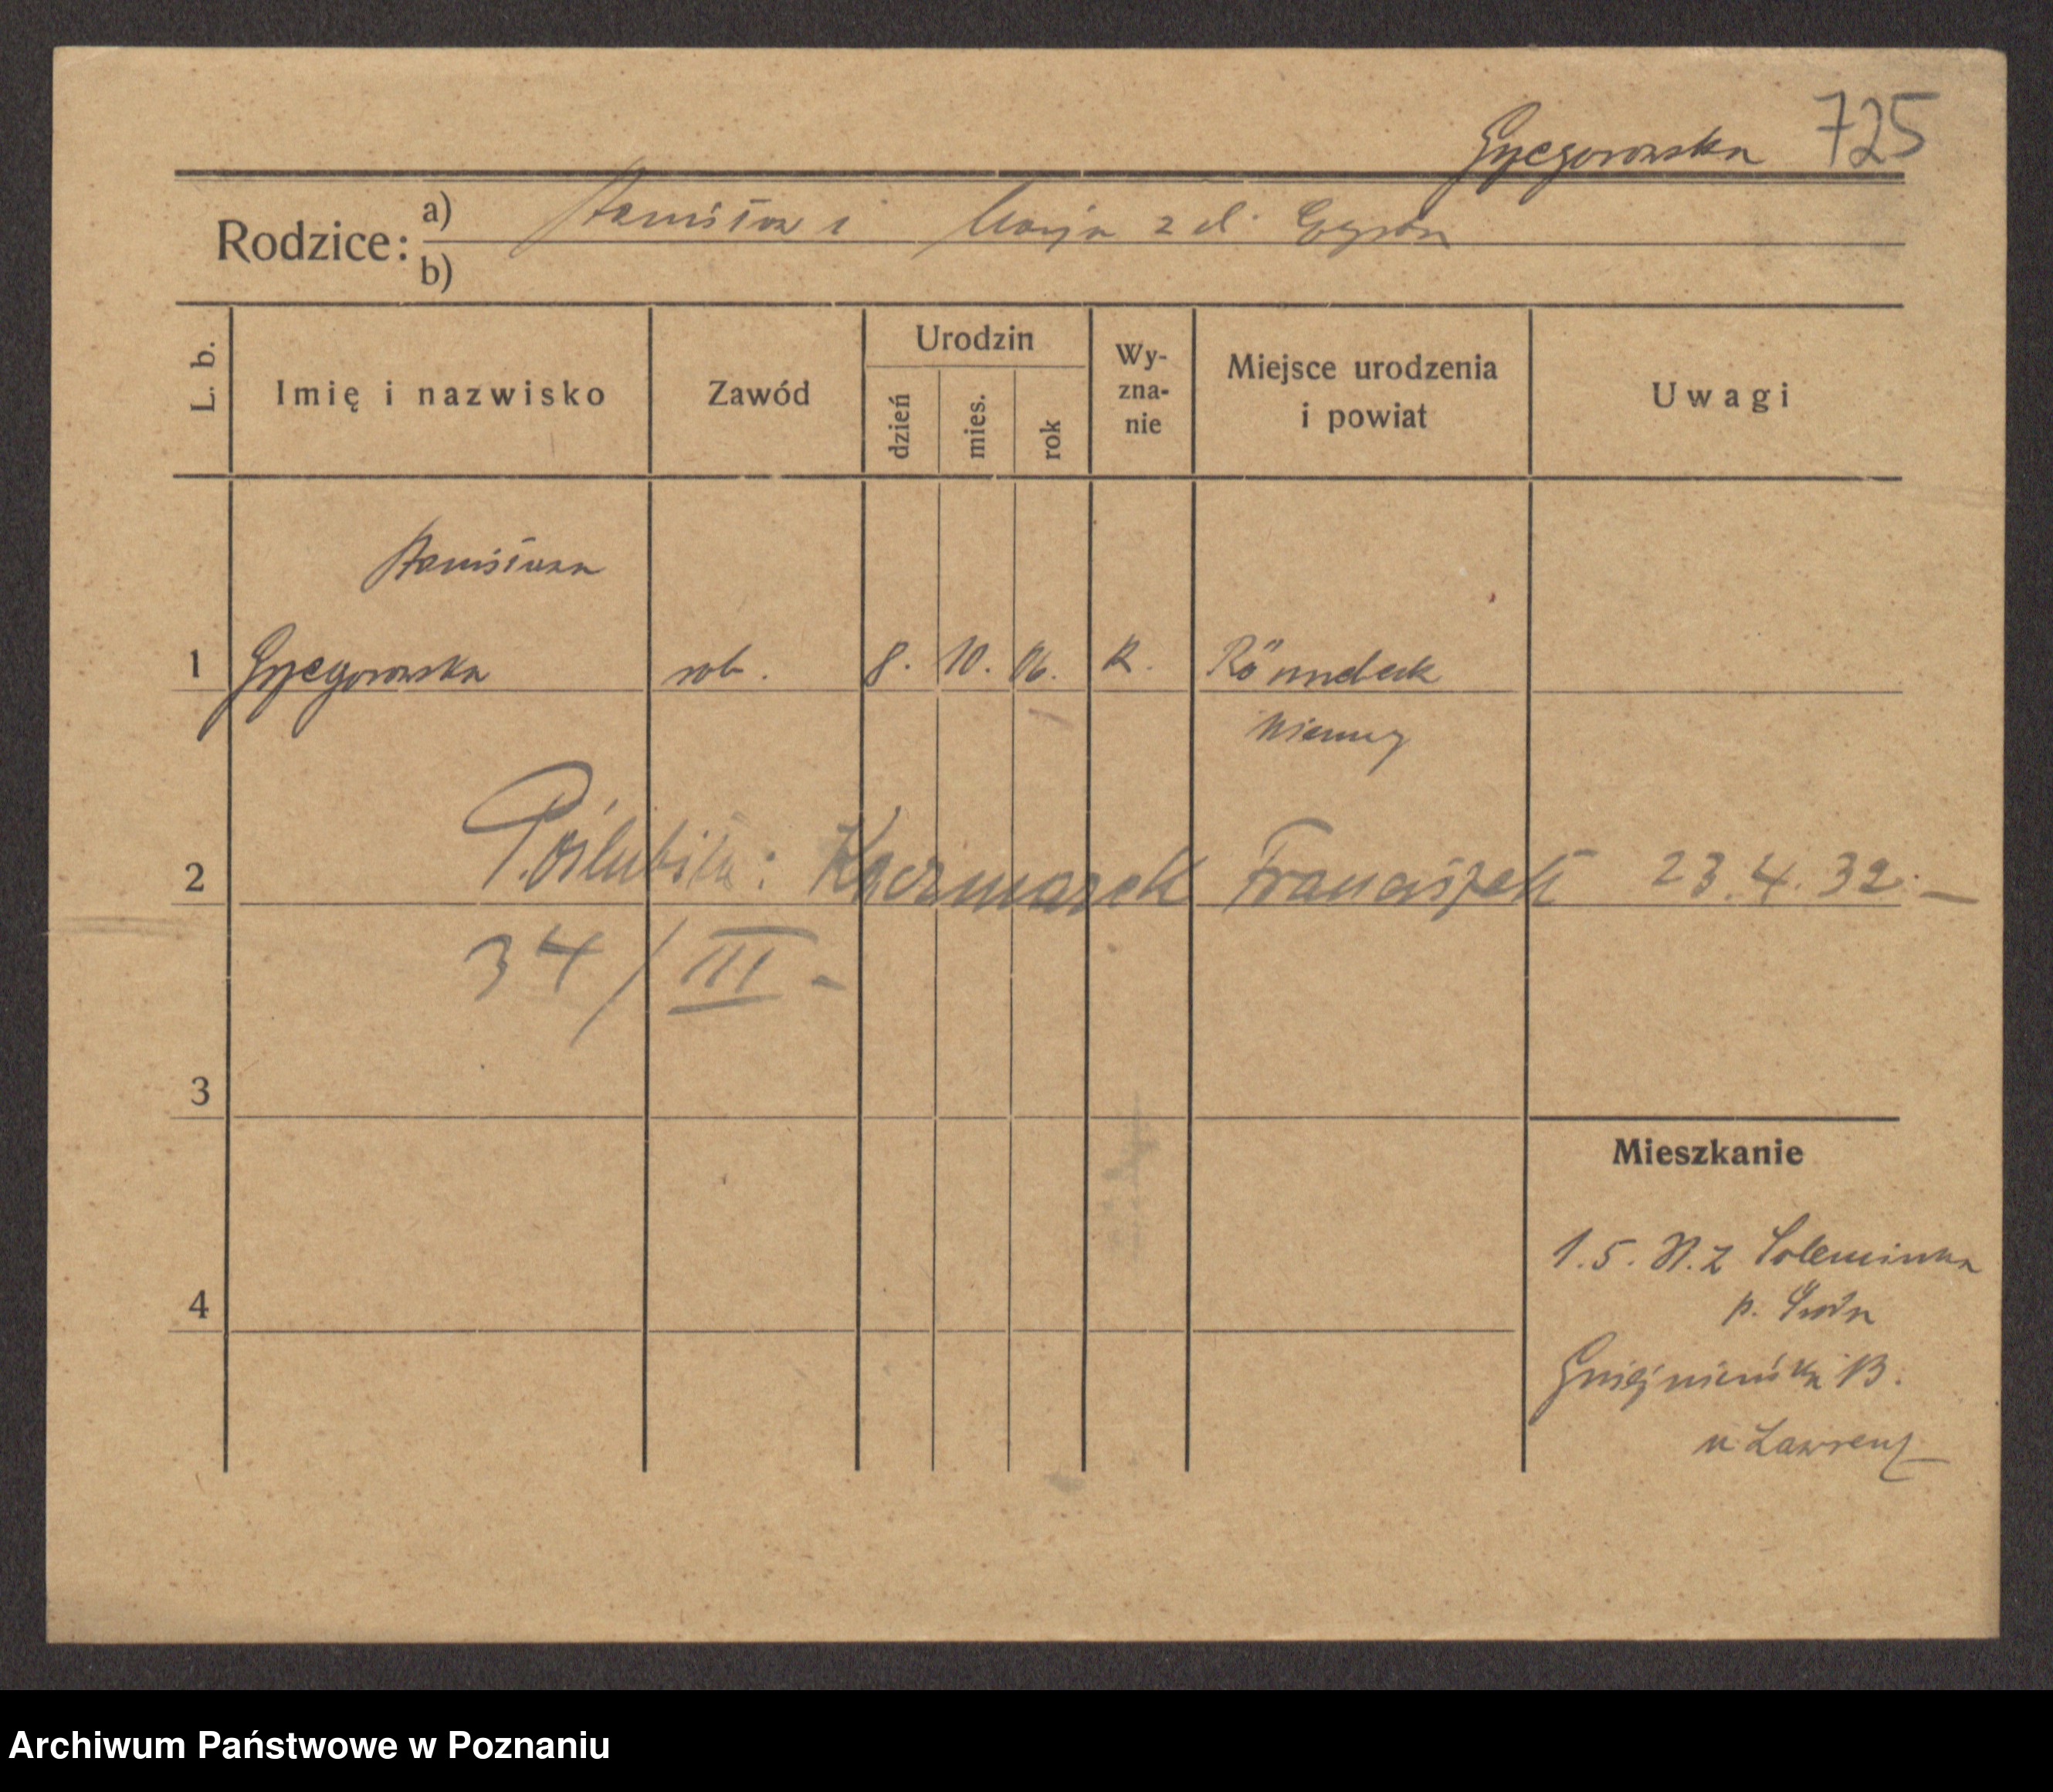 Grzegorowska 725
Rodzice:
a) Stanisław i Marja z d.
b)
L. b.
Imię i nazwisko
Zawód
Urodzin
dzień
mies.
rok
Wy-
zna-
nie
Miejsce urodzenia
i powiat
Uwagi
Stanisława
1 Grzegorowska rob. 8. 10. 06. R. Rönnebeck
Niemcy
2 Poślubiła: Kaczmarek Franciszek 23.4.32.—
34/III -
3
Mieszkanie
1.5. 31. z
4
p. Środa
Gnieźnieńska 13.
u Lawrenz
Archiwum Państwowe w Poznaniu